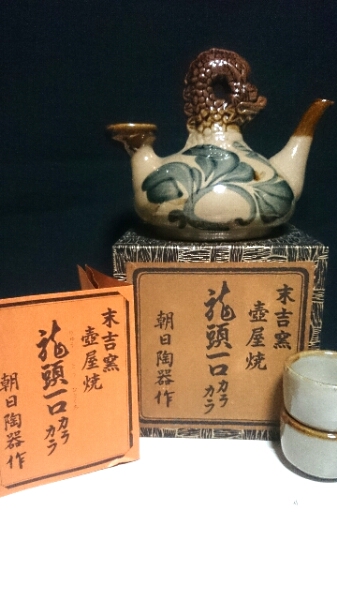 末吉窯
壺屋焼
龍頭一口カラカラ
朝日陶器作
末吉窯
壺屋焼
龍頭一口カラカラ
朝日陶器作